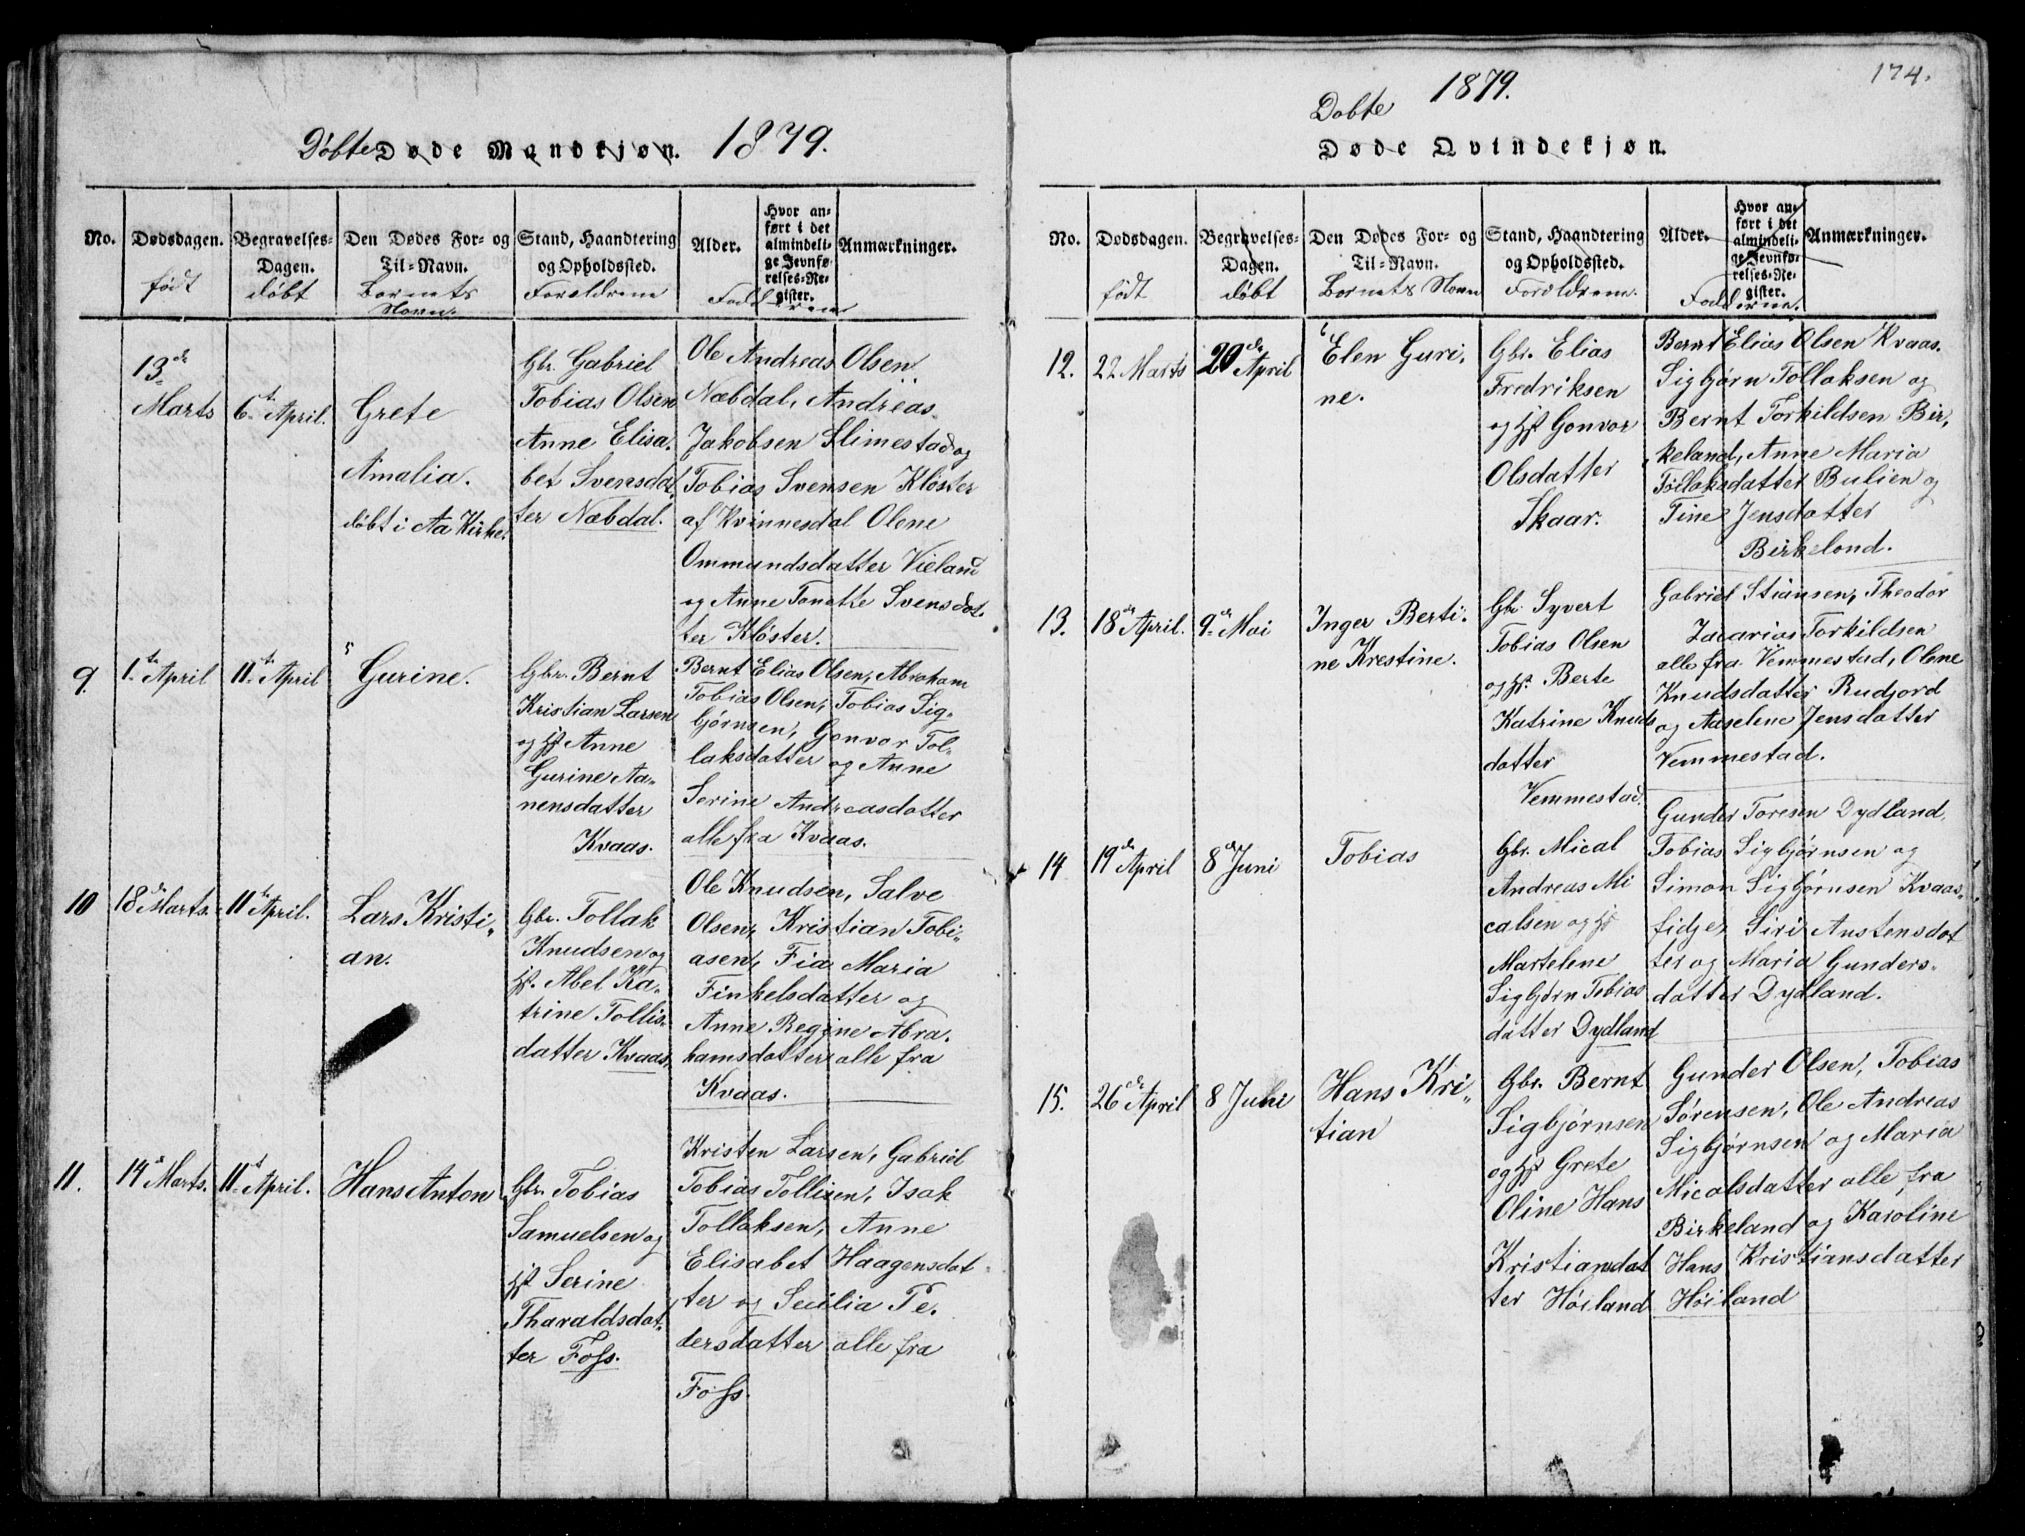 Døbte Døde Mandkjøn. 1879.
No.
Dødsdagen.
født
Begravelses-
Dagen.
døbt
Den Dødes For- og
Til-Navn.
Barnets
Navn.
Stand, Haandtering
og Opholdssted.
Forældrene
Alder.
Hvor an-
ført i det
almindeli-
ge Jevnfø-
relses-Re-
gister.
Anmærkninger.
Fadderne
13de
Marts
6te April.
Grete
Amalia.
døbt i Aa Kirke.
Gbr. Gabriel
Tobias Olsen
Anne Elisa-
bet Svensdat-
ter Næbdal.
Ole Andreas Olsen
Næbdal, Andreas
Jakobsen Slimestad og
Tobias Svensen Kløster
af Kvinnesdal Olene
Ommundsdatter Vieland
og Anne Tonette Svensdat-
ter Kløster.
9.
1te April
11te April
Gurine.
Gbr. Bernt
Kristian Larsen
og Hst Anne
Gurine Aa-
nensdatter
Kvaas.
Bernt Elias Olsen, Abraham
Tobias Olsen, Tobias Sig-
bjørnsen, Gonvor Tol-
laksdatter og Anne
Serine Andreasdatter
alle fra Kvaas.
10
18de Marts.
11te April.
Lars Kristi-
an.
Gbr. Tollak
Knudsen og
Hst. Abel Ka-
trine Tollis-
datter Kvaas.
Ole Knudsen, Salve
Olsen, Kristian Tobi-
asen, Fia Maria
Finkelsdatter og
Anne Regine Abra-
hamsdatter alle fra
Kvaas.
11.
14de Marts.
11te April.
Hans Anton
Gbr. Tobias
Samuelsen og
Hst Serine
Tharaldsdat-
ter Foss.
Kristen Larsen, Gabriel
Tobias Tollisen, Isak
Tollaksen, Anne
Elisabet Haagensdat-
ter og Secilia Pe-
dersdatter alle fra
Foss.
174.
1879.
Døbte
Døde Qvindekjøn.
No.
Dødsdagen.
født
Begravelses-
Dagen.
døbt
Den Dødes For- og
Til-Navn.
Barnets Navn
Stand, Haandtering
og Opholdssted.
Forældrene.
Alder.
Hvor an-
ført i det
almindeli-
ge Jevnfø-
relses-Re-
gister.
Anmærkninger.
Fadderne.
12.
22 Marts
20de April
Elen Guri-
ne.
Gbr. Elias
Fredriksen
og Hst Gonvor
Olsdatter
Skaar.
Bernt Elias Olsen Kvaas.
Sigbjørn Tollaksen og
Bernt Torkildsen Bir-
keland, Anne Maria
Tollaksdatter Bulien og
Tine Jensdatter
Birkeland.
13.
18de April.
9de Mai
Inger Berti-
ne Krestine.
Gbr. Syvert
Tobias Olsen
og Hst. Berte
Katrine Knuds
datter
Vemmestad.
Gabriel Stiansen, Theodor
Zacarias Torkildsen
alle fra Vemmestad, Olene
Knudsdatter Rudjord
og Aaselene Jensdatter
Vemmestad.
14
19de April
8de Juni
Tobias
Gbr. Mical
Andreas Mi
calsen og Hst
Martelene
Sigbjørn Tobias
datter Dydland
Gunder Toresen Dydland,
Tobias Sigbjørnsen og
Simon Sigbjørnsen Kvaas-
fidjer Siri Austensdat
ter og Maria Gunders-
datter Dydland.
15.
26de April
8 Juni
Hans Kri-
tian
Gbr. Bernt
Sigbjørnsen
og Hst Grete
Oline Hans
Kristiansdat
ter Høiland
Gunder Olsen, Tobias
Sørensen, Ole Andreas
Sigbjørnsen og Maria
Micalsdatter alle fra
Birkeland og Karoline
Hans Kristiansdatter
Høiland